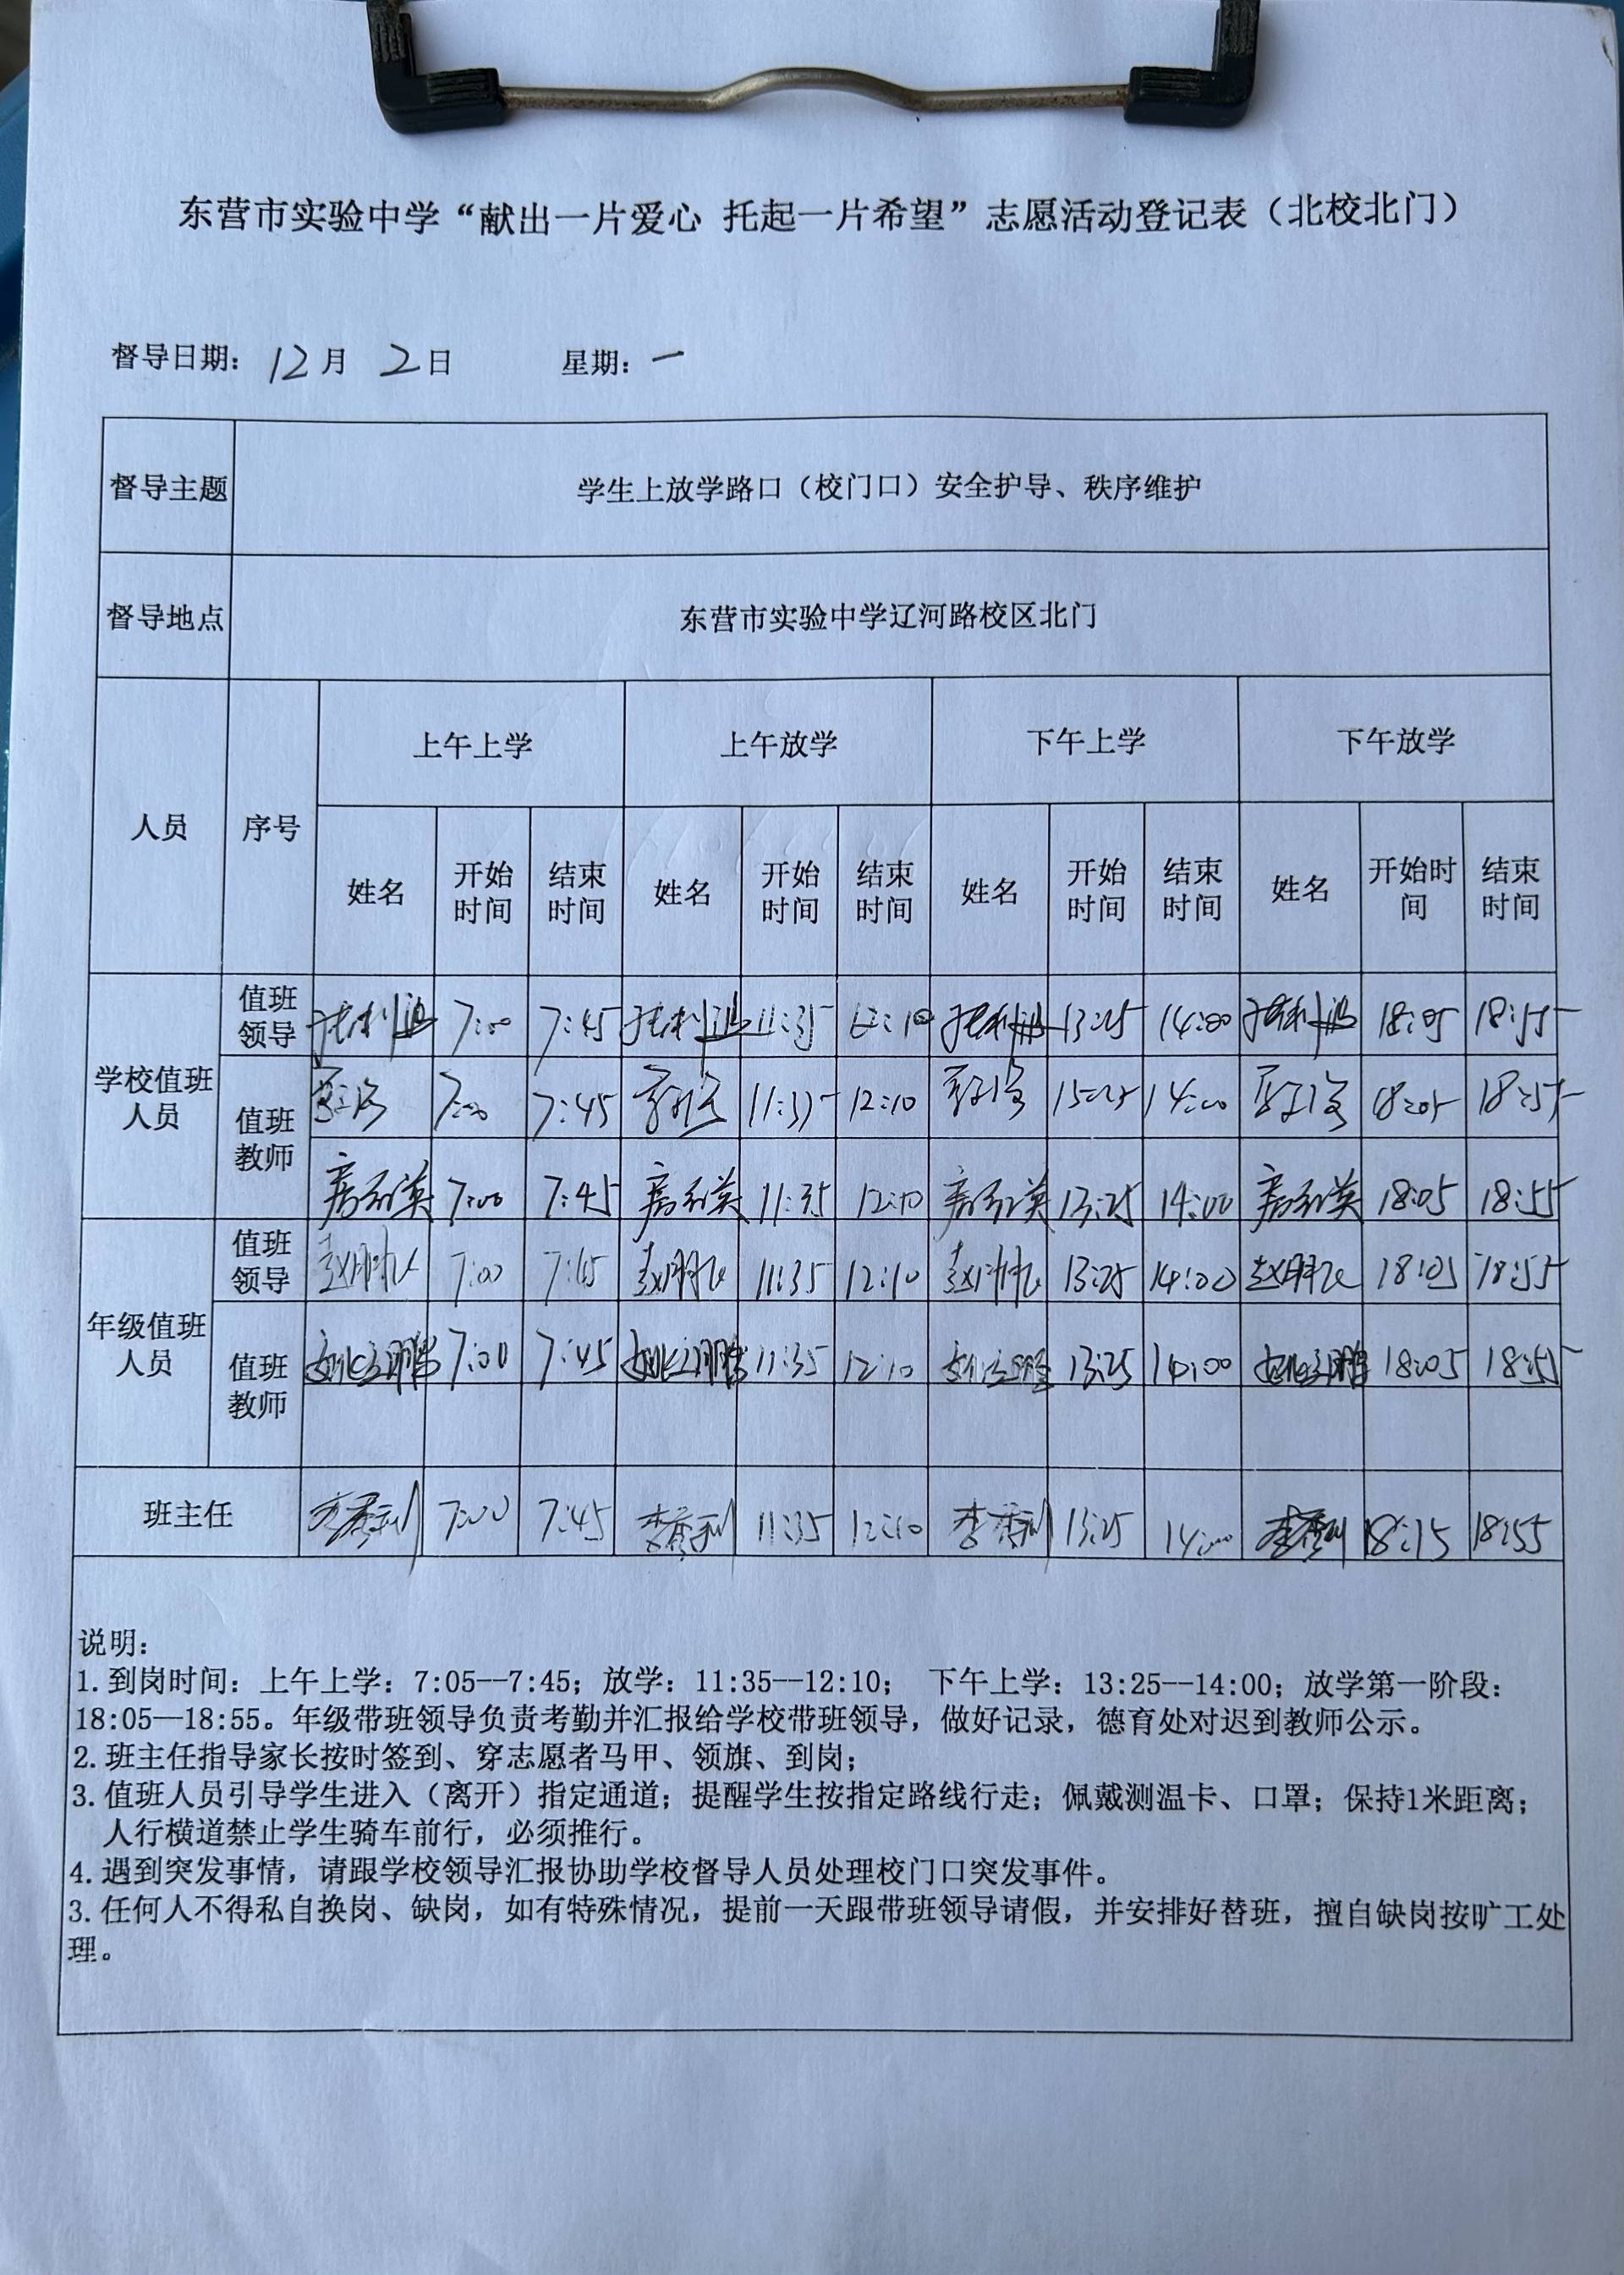 东营市实验中学“献出一片爱心 托起一片希望”志愿活动登记表（北校北门）
督导日期： 12月 2日 星期：一
督导主题 学生上放学路口（校门口）安全护导、秩序维护
督导地点 东营市实验中学辽河路校区北门
人员 序号 上午上学 上午放学 下午上学 下午放学
姓名 开始时间 结束时间 姓名 开始时间 结束时间 姓名 开始时间 结束时间 姓名 开始时间 结束时间
学校值班人员 值班领导 7:00 7:45 11:35 12:10 13:25 14:00 18:05 18:55
值班教师 7:00 7:45 11:35 12:10 14:00 18:05 18:55
7:00 7:45 11:35 12:10 13:25 14:00 18:05 18:55
年级值班人员 值班领导 赵鹏飞 7:00 7:45 赵鹏飞 11:35 12:10 赵鹏飞 13:25 14:00 赵鹏飞 18:05 18:55
值班教师 7:00 7:45 11:35 12:10 13:25 14:00 18:05 18:55
班主任 李秀利 7:00 7:45 李秀利 11:35 12:10 李秀利 13:25 14:00 李秀利 18:15 18:55
说明：
1.到岗时间：上午上学：7:05--7:45；放学：11:35--12:10； 下午上学：13:25--14:00；放学第一阶段：
18:05—18:55。年级带班领导负责考勤并汇报给学校带班领导，做好记录，德育处对迟到教师公示。
2.班主任指导家长按时签到、穿志愿者马甲、领旗、到岗；
3.值班人员引导学生进入（离开）指定通道；提醒学生按指定路线行走；佩戴测温卡、口罩；保持1米距离；
人行横道禁止学生骑车前行，必须推行。
4.遇到突发事情，请跟学校领导汇报协助学校督导人员处理校门口突发事件。
3.任何人不得私自换岗、缺岗，如有特殊情况，提前一天跟带班领导请假，并安排好替班，擅自缺岗按旷工处
理。